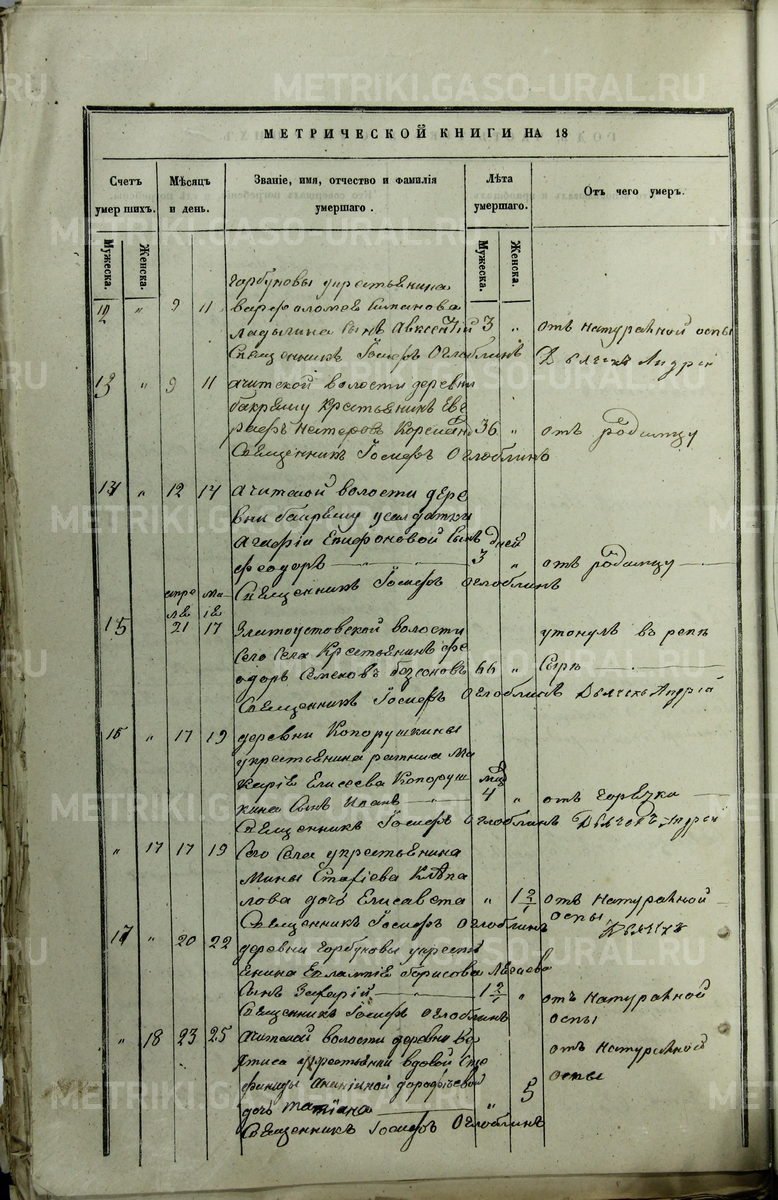 METRIKI.GASO-URAL.RU
МЕТРИЧЕСКОЙ КНИГИ НА 18
Счетъ умер шихъ.
Мѣсяцъ и день.
Званіе, имя, отчество и фамилія умершаго.
Лѣта умершаго.
Отъ чего умеръ.
Мужеска.
Женска.
Мужеска.
Женска.
горбуновы укрестьянина
12 " 9 11 варфоломея
Ладыгина сынъ Авксентій 3 " отъ натуральной оспы
Священникъ Іосифъ Оглоблинъ Дьячекъ Андрей
13 " 9 11 ачитской волости деревни
бакряжу крестьянинъ Ев
графъ Нестеровъ 36 " отъ родимцу
Священникъ Іосифъ Оглоблинъ
14 " 12 14 Ачитской волости дере
вни бакряжу усолдатки
Агафіи Епифоновой сынъ дней
феодоръ 3 " отъ родимцу
Священникъ Іосифъ Оглоблинъ
апре ма
ля ія
15 21 17 Златоустовской волости утонулъ в реке
сего села Крестьянинъ фе
одоръ Семеновъ 66 " Сыре
Священникъ Іосифъ Оглоблинъ Дьячекъ Андрей
16 " 17 19 деревни Копорушкины
укрестьянина ратника Ма
карія Елисеева Копоруш мѣс
кина сынъ Иванъ 4 " отъ горячки
Священникъ Іосифъ Оглоблинъ Дьячекъ Андрей
" 17 17 19 Сего села укрестьянина
Мины Клепа
лова дочь Елисавета " 1 2/1 отъ натуральной
Священникъ Іосифъ Оглоблинъ оспы
Дьячекъ
17 " 20 22 деревни Горбуновы укресть
янина Евлампія борисова
сынъ Захарій 1 2/1 " отъ натуральной
Священникъ Іосифъ Оглоблинъ оспы
" 18 23 25 Ачитской волости деревни
укрестьянки вдовой Сте отъ натуральной
фаниды Ананіиной дорофѣевой оспы
дочь татіана " 5
Священникъ Іосифъ Оглоблинъ